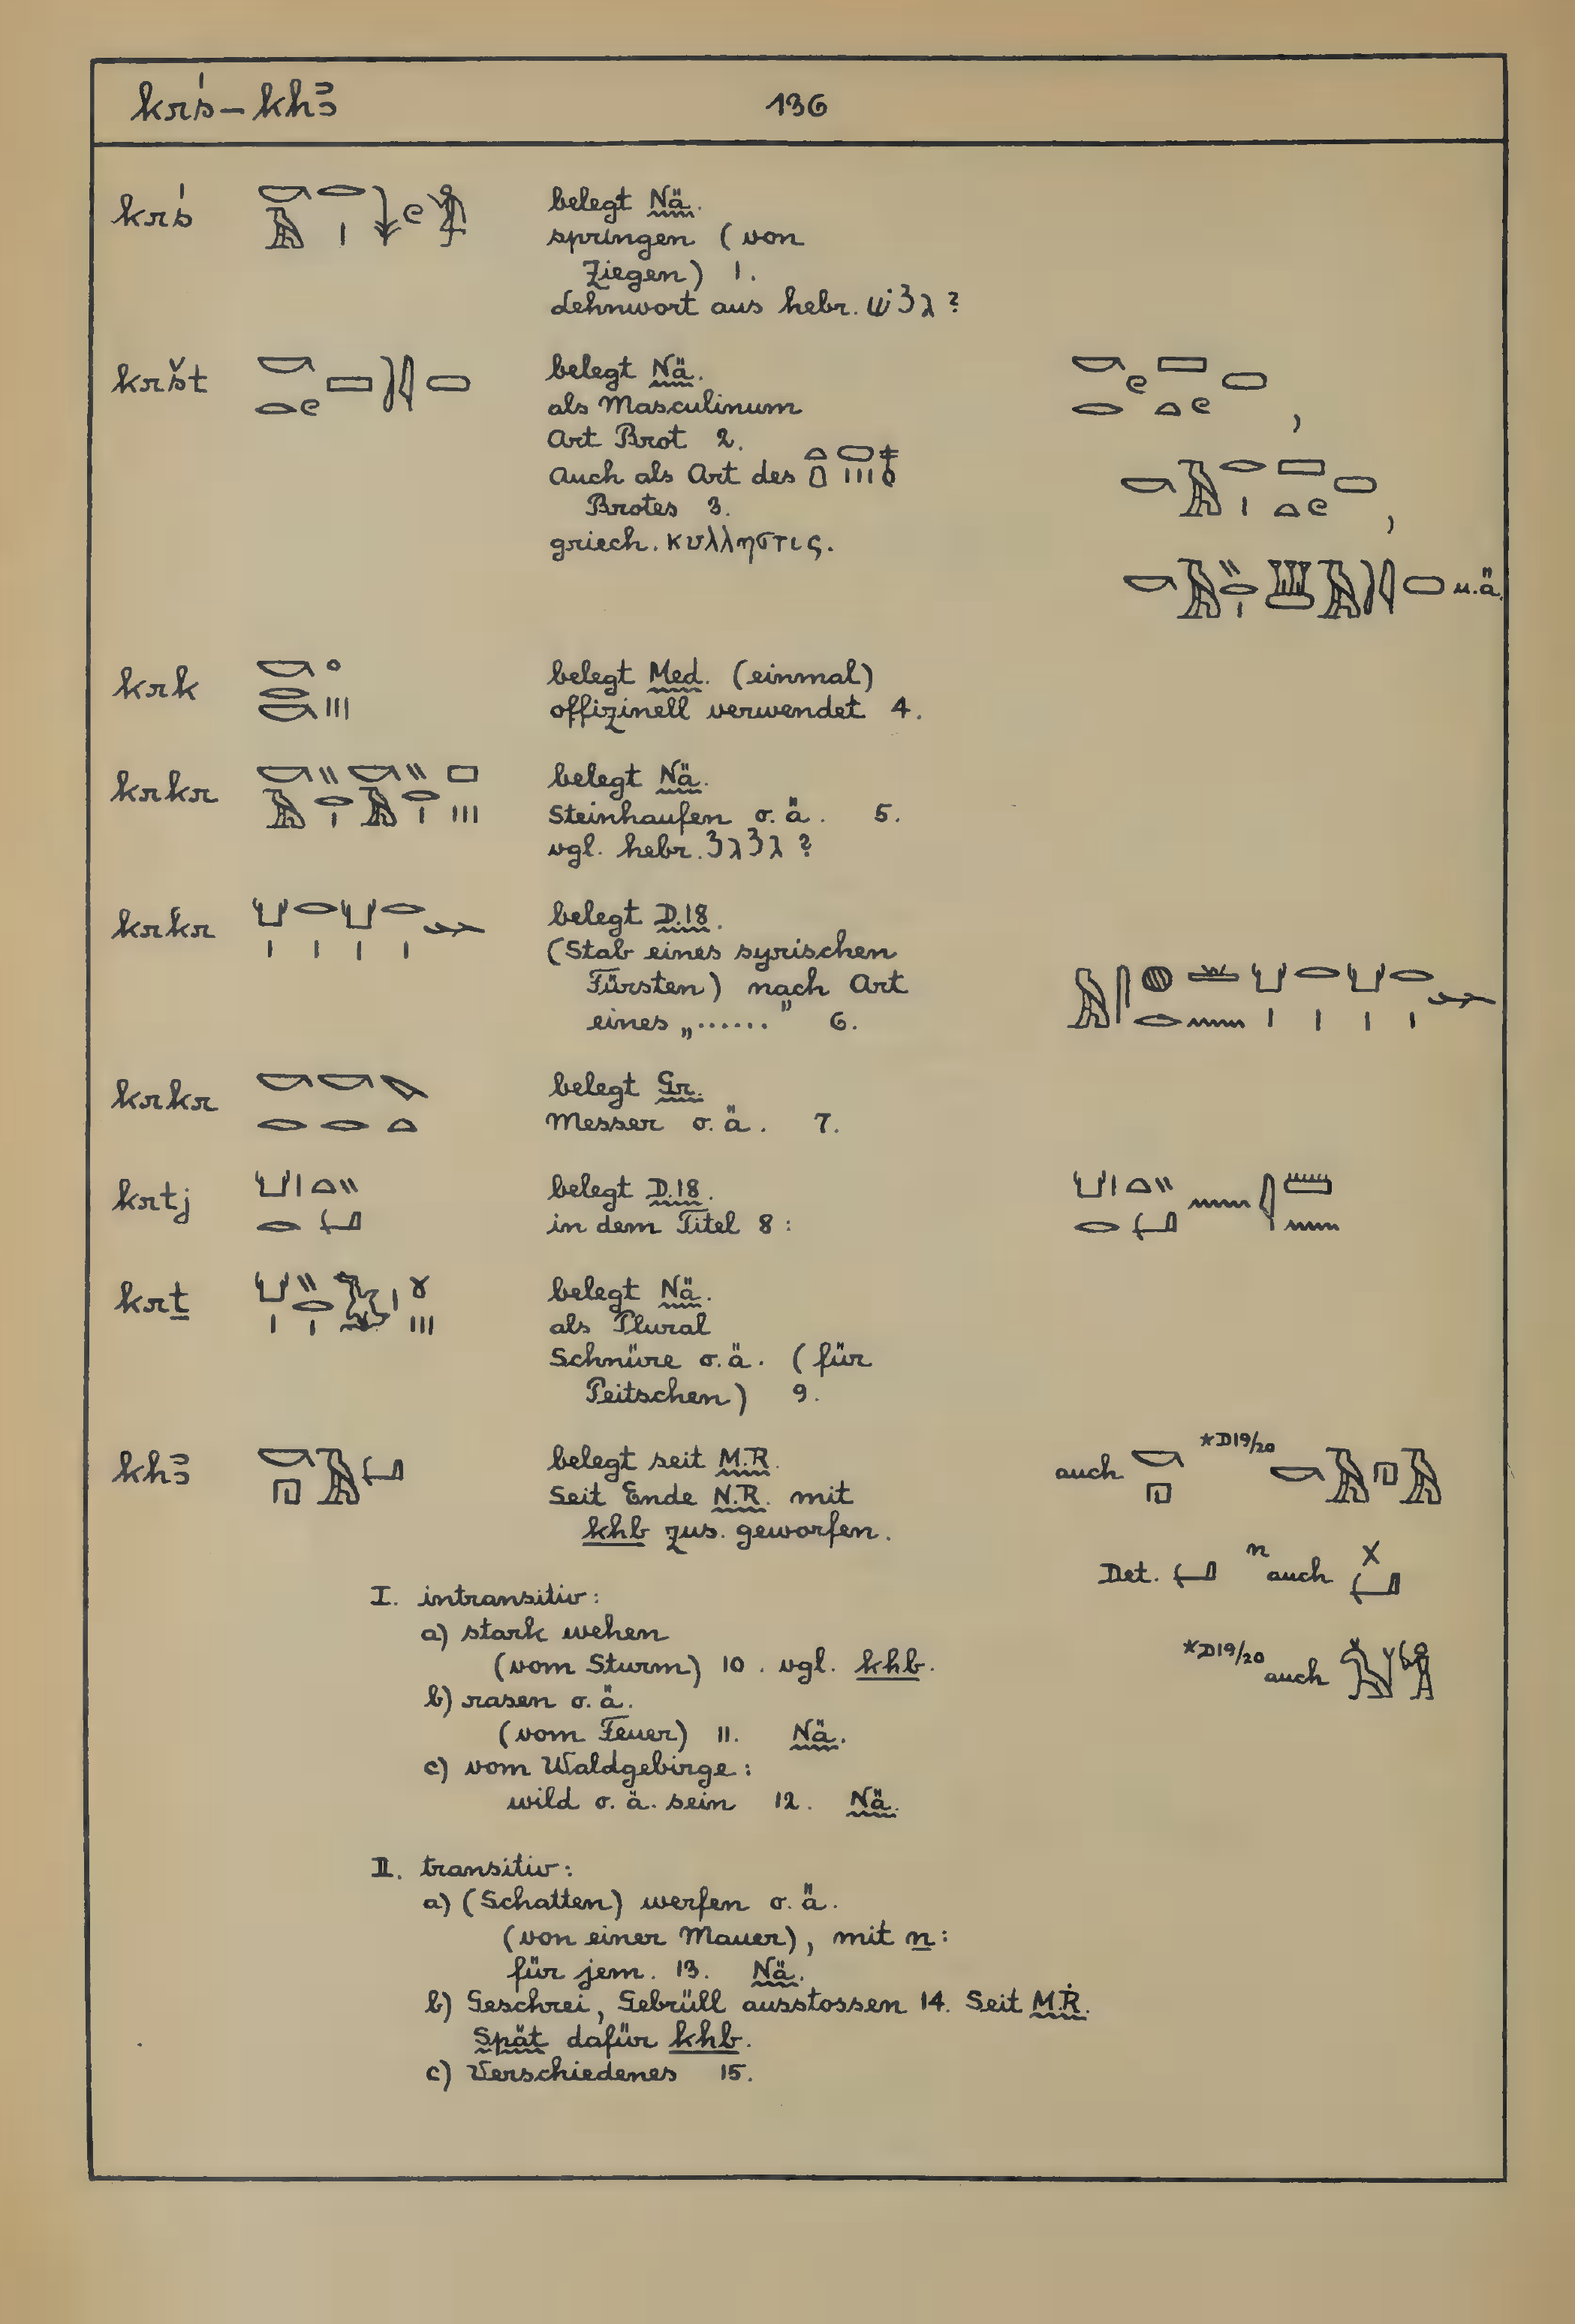 krś – khꜣ 136
krś belegt Nä.
springen (von
Ziegen) 1.
Lehnwort aus hebr. ?
kršt belegt Nä.
als Masculinum
Art Brot 2.
Auch als Art des
Brotes 3.
griech. κυλληστις.
u.ä.
krk belegt Med. (einmal)
offizinell verwendet 4.
krkr belegt Nä.
Steinhaufen o.ä. 5.
vgl. hebr. ?
krkr belegt D.18.
(Stab eines syrischen
Fürsten) nach Art
eines „......" 6.
krkr belegt Gr.
Messer o.ä. 7.
krtj belegt D.18.
in dem Titel 8:
krṯ belegt Nä.
als Plural
Schnüre o.ä. (für
Peitschen) 9.
khꜣ belegt seit M.R. auch *D19/20
Seit Ende N.R. mit
khb zus. geworfen.
Det. n auch
I. intransitiv:
a) stark wehen
(vom Sturm) 10. vgl. khb. *D19/20 auch
b) rasen o.ä.
(vom Feuer) 11. Nä.
c) vom Waldgebirge:
wild o.ä. sein 12. Nä.
II. transitiv:
a) (Schatten) werfen o.ä.
(von einer Mauer), mit n:
für jem. 13. Nä.
b) Geschrei, Gebrüll ausstossen 14. Seit M.R.
Spät dafür khb.
c) Verschiedenes 15.